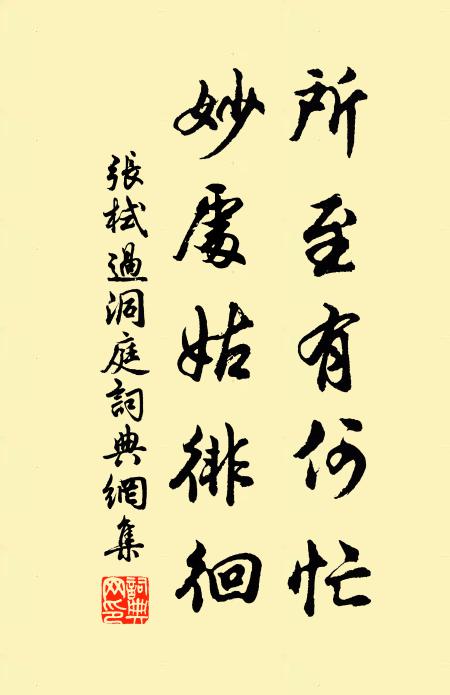 所至有何忙
妙處姑徘徊
張栻過洞庭詞典網集
詞典網印